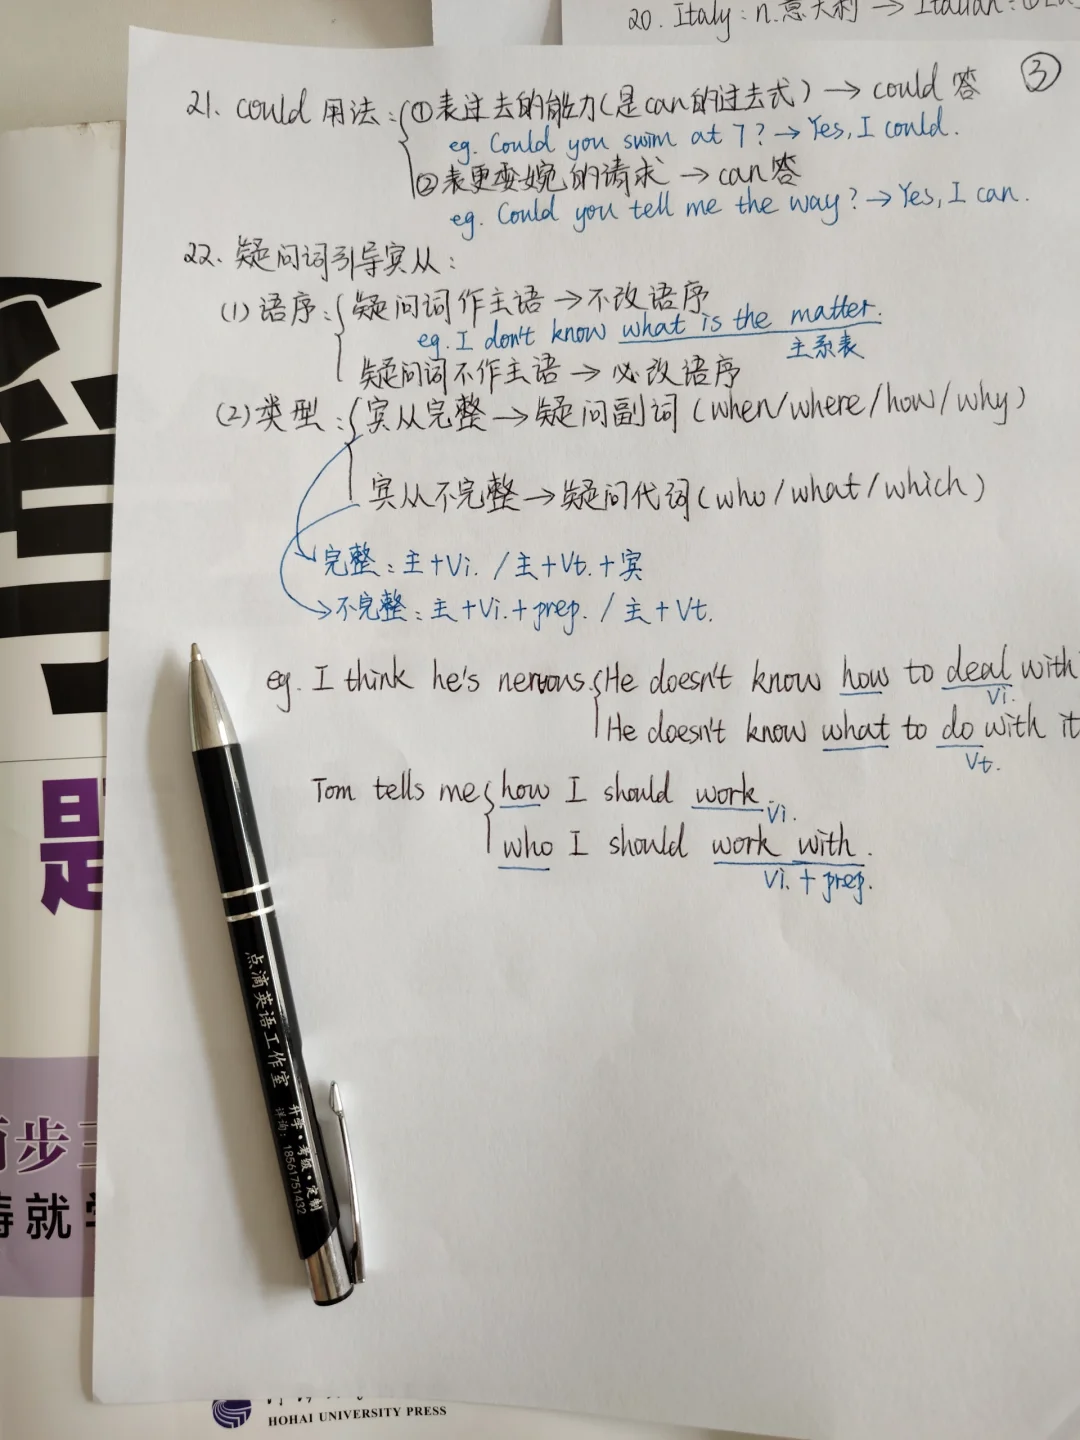 20. Italy: n.意大利 → Italian:
③
21. could 用法: ①表过去的能力(是can的过去式) → could 答
eg. Could you swim at 7? → Yes, I could.
②表更委婉的请求 → can答
eg. Could you tell me the way? → Yes, I can.
22. 疑问词引导宾从:
(1) 语序: 疑问词作主语 → 不改语序
eg. I don't know what is the matter.
主系表
疑问词不作主语 → 必改语序
(2) 类型: 宾从完整 → 疑问副词 (when/where/how/why)
宾从不完整 → 疑问代词 (who/what/which)
完整: 主+Vi. / 主+Vt.+宾
不完整: 主+Vi.+prep. / 主+Vt.
eg. I think he's nervous. He doesn't know how to deal with
Vi.
He doesn't know what to do with it
Vt.
Tom tells me how I should work.
Vi.
who I should work with.
Vi. + prep.
是
步
就
点滴英语工作室
升学·考级·定制
详询: 18561751432
HOHAI UNIVERSITY PRESS